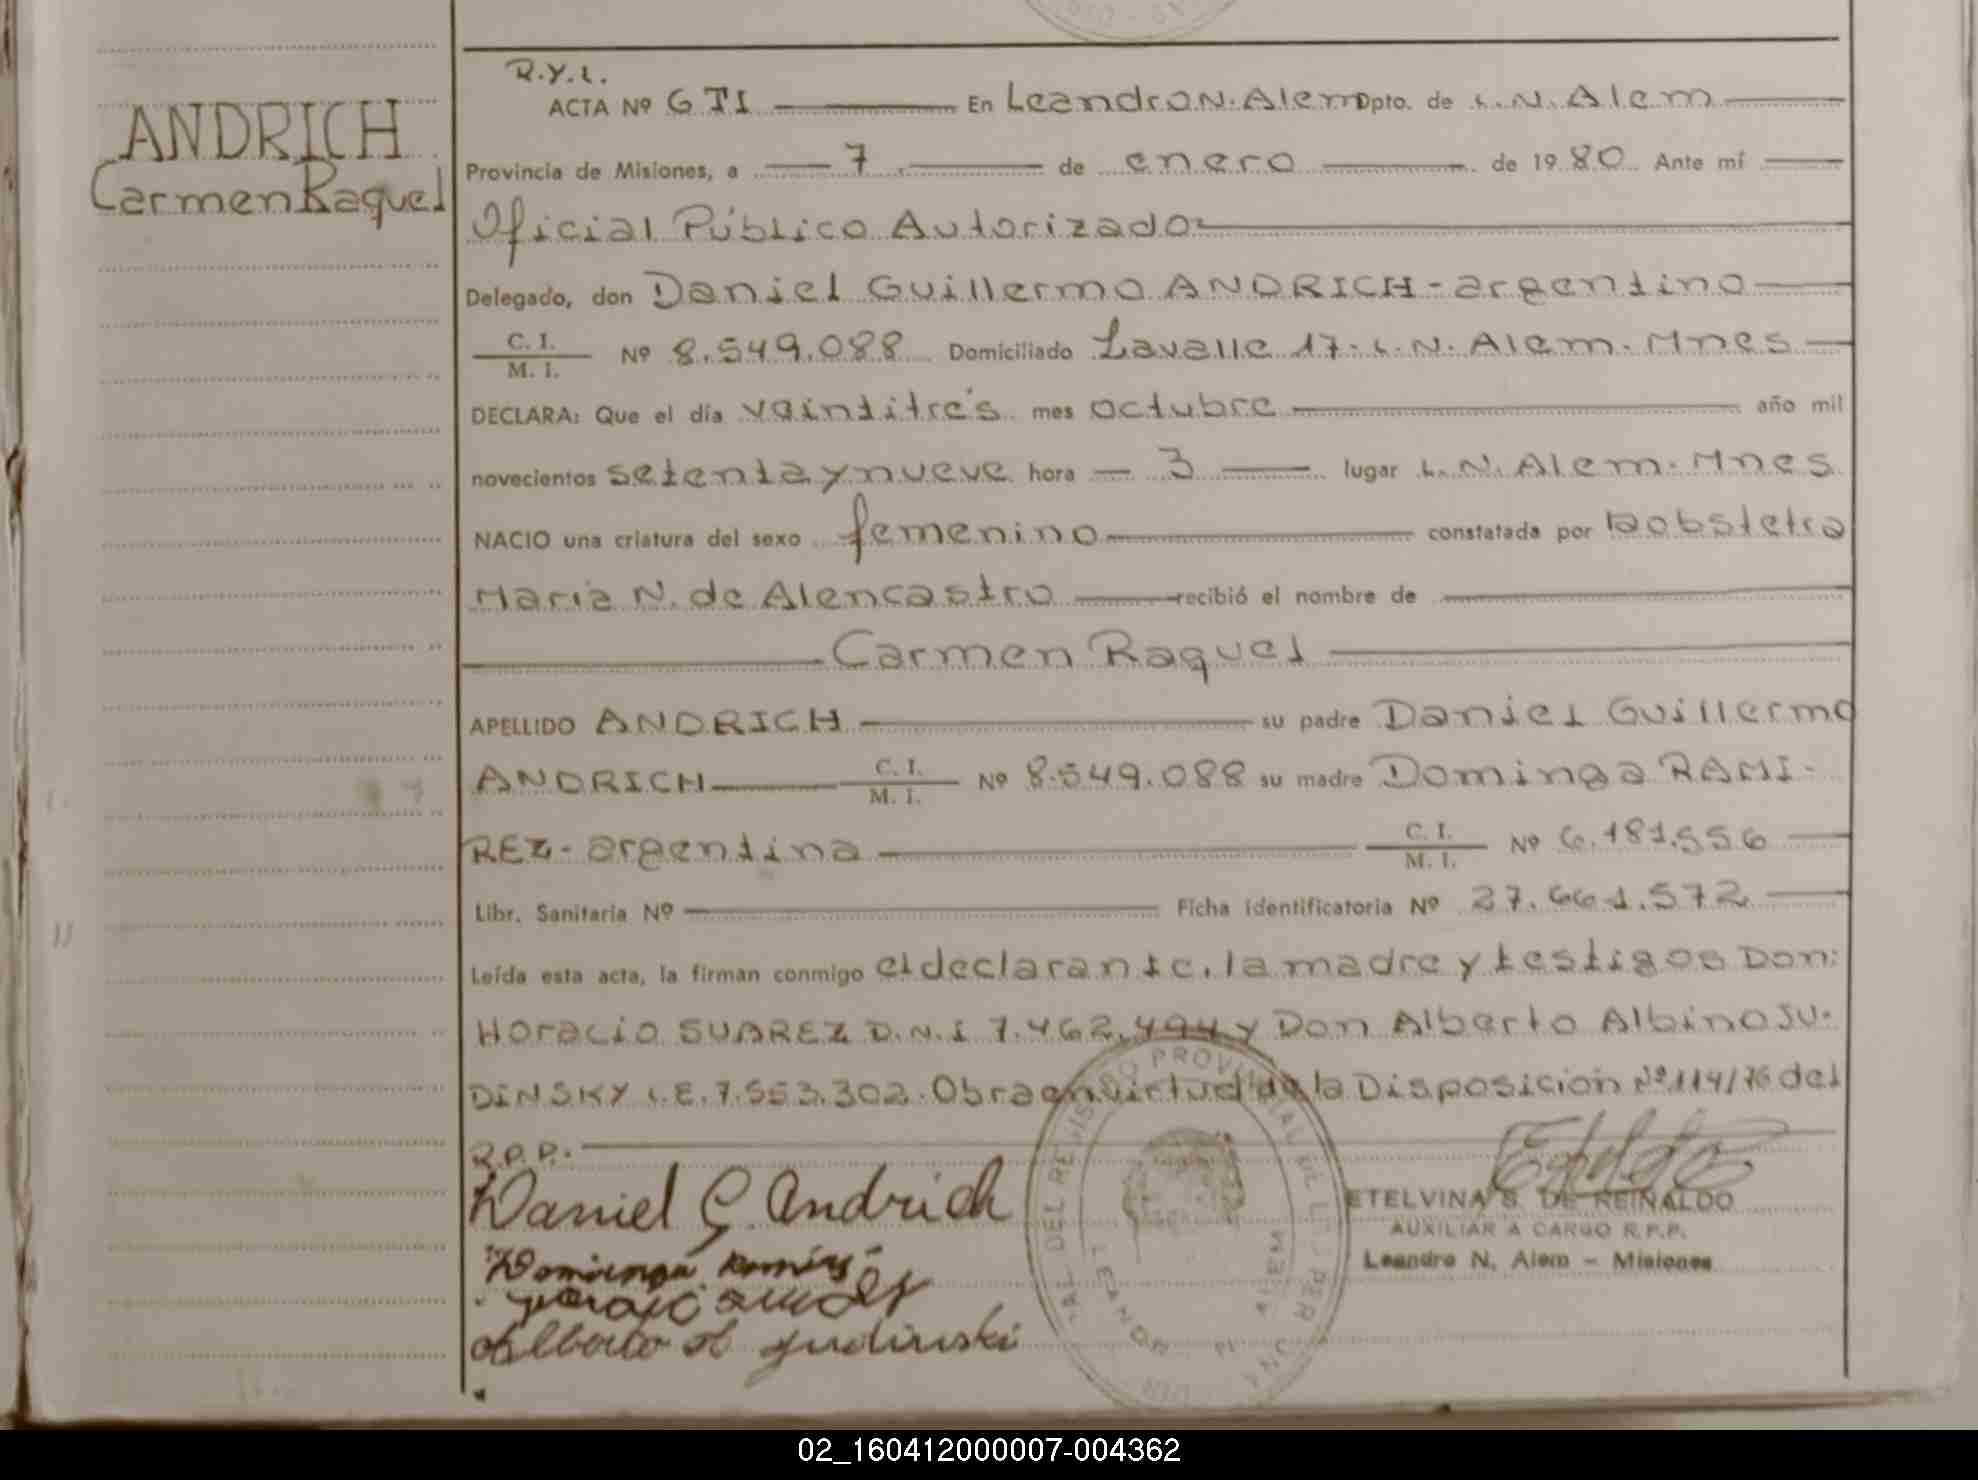 R.Y.L.
ACTA Nº 6 TI En Leandro N. Alem Dpto. de L.N. Alem
ANDRICH
Carmen Raquel
Provincia de Misiones, a 7 de enero de 1980. Ante mí
Oficial Público Autorizado
Delegado, don Daniel Guillermo ANDRICH - argentino
C. I. / M. I. Nº 8.549.088 Domiciliado Lavalle 17. L.N. Alem. Mnes
DECLARA: Que el día veintitrés mes octubre año mil
novecientos setenta y nueve hora 3 lugar L.N. Alem. Mnes
NACIO una criatura del sexo femenino constatada por la obstetra
Maria N. de Alencastro recibió el nombre de
Carmen Raquel
APELLIDO ANDRICH su padre Daniel Guillermo
ANDRICH C. I. / M. I. Nº 8.549.088 su madre Dominga RAMI-
REZ - argentina C. I. / M. I. Nº 6.181.556
Libr. Sanitaria Nº Ficha Identificatoria Nº 27.661.572
Leída esta acta, la firman conmigo el declarante, la madre y testigos Don:
Horacio SUAREZ D.N.I 7.462.494 y Don Alberto Albino JU-
DINSKY L.E. 7.553.302. Obra en virtud de la Disposición Nº 114/76 del
R.P.P.
Daniel G. Andrich
Dominga Ramírez
Alberto A Judinski
ETELVINA S. DE REINALDO
AUXILIAR A CARGO R.P.P.
Leandro N. Alem - Misiones
02_160412000007-004362